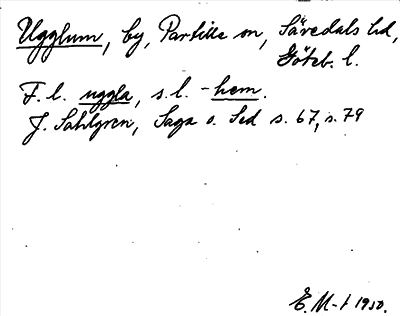 Ugglum, by, Partille sn, Sävedals hd,
Göteb. l.
F. l. uggla, s. l. -hem.
J. Sahlgren, Saga o. Sed s. 67, s. 79
E. M-t 1950.